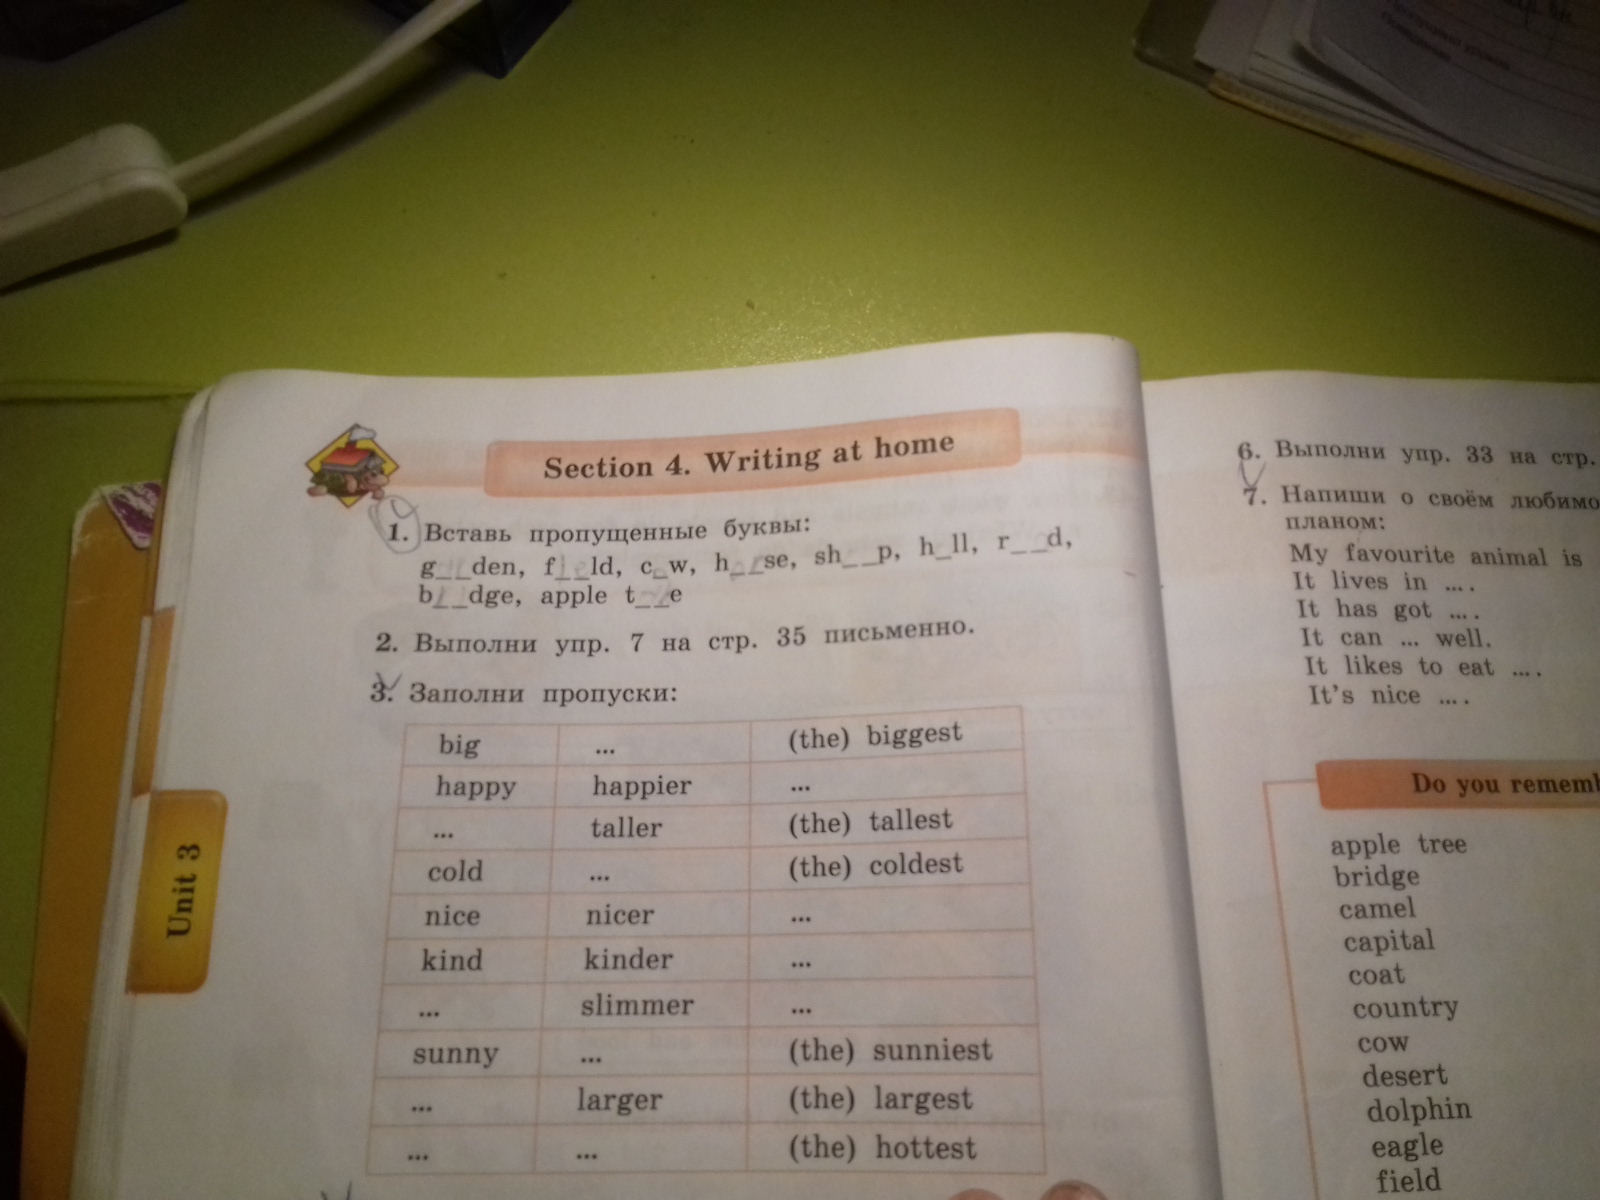 Section 4. Writing at home
1. Вставь пропущенные буквы:
g__den, f__ld, c_w, h__se, sh__p, h_ll, r__d,
b__dge, apple t__e
2. Выполни упр. 7 на стр. 35 письменно.
3. Заполни пропуски:
big ... (the) biggest
happy happier ...
... taller (the) tallest
cold ... (the) coldest
nice nicer ...
kind kinder ...
... slimmer ...
sunny ... (the) sunniest
... larger (the) largest
... ... (the) hottest
Unit 3
6. Выполни упр. 33 на стр.
7. Напиши о своём
планом:
My favourite animal is
It lives in ....
It has got ....
It can ... well.
It likes to eat ....
It's nice ....
Do you
apple tree
bridge
camel
capital
coat
country
cow
desert
dolphin
eagle
field